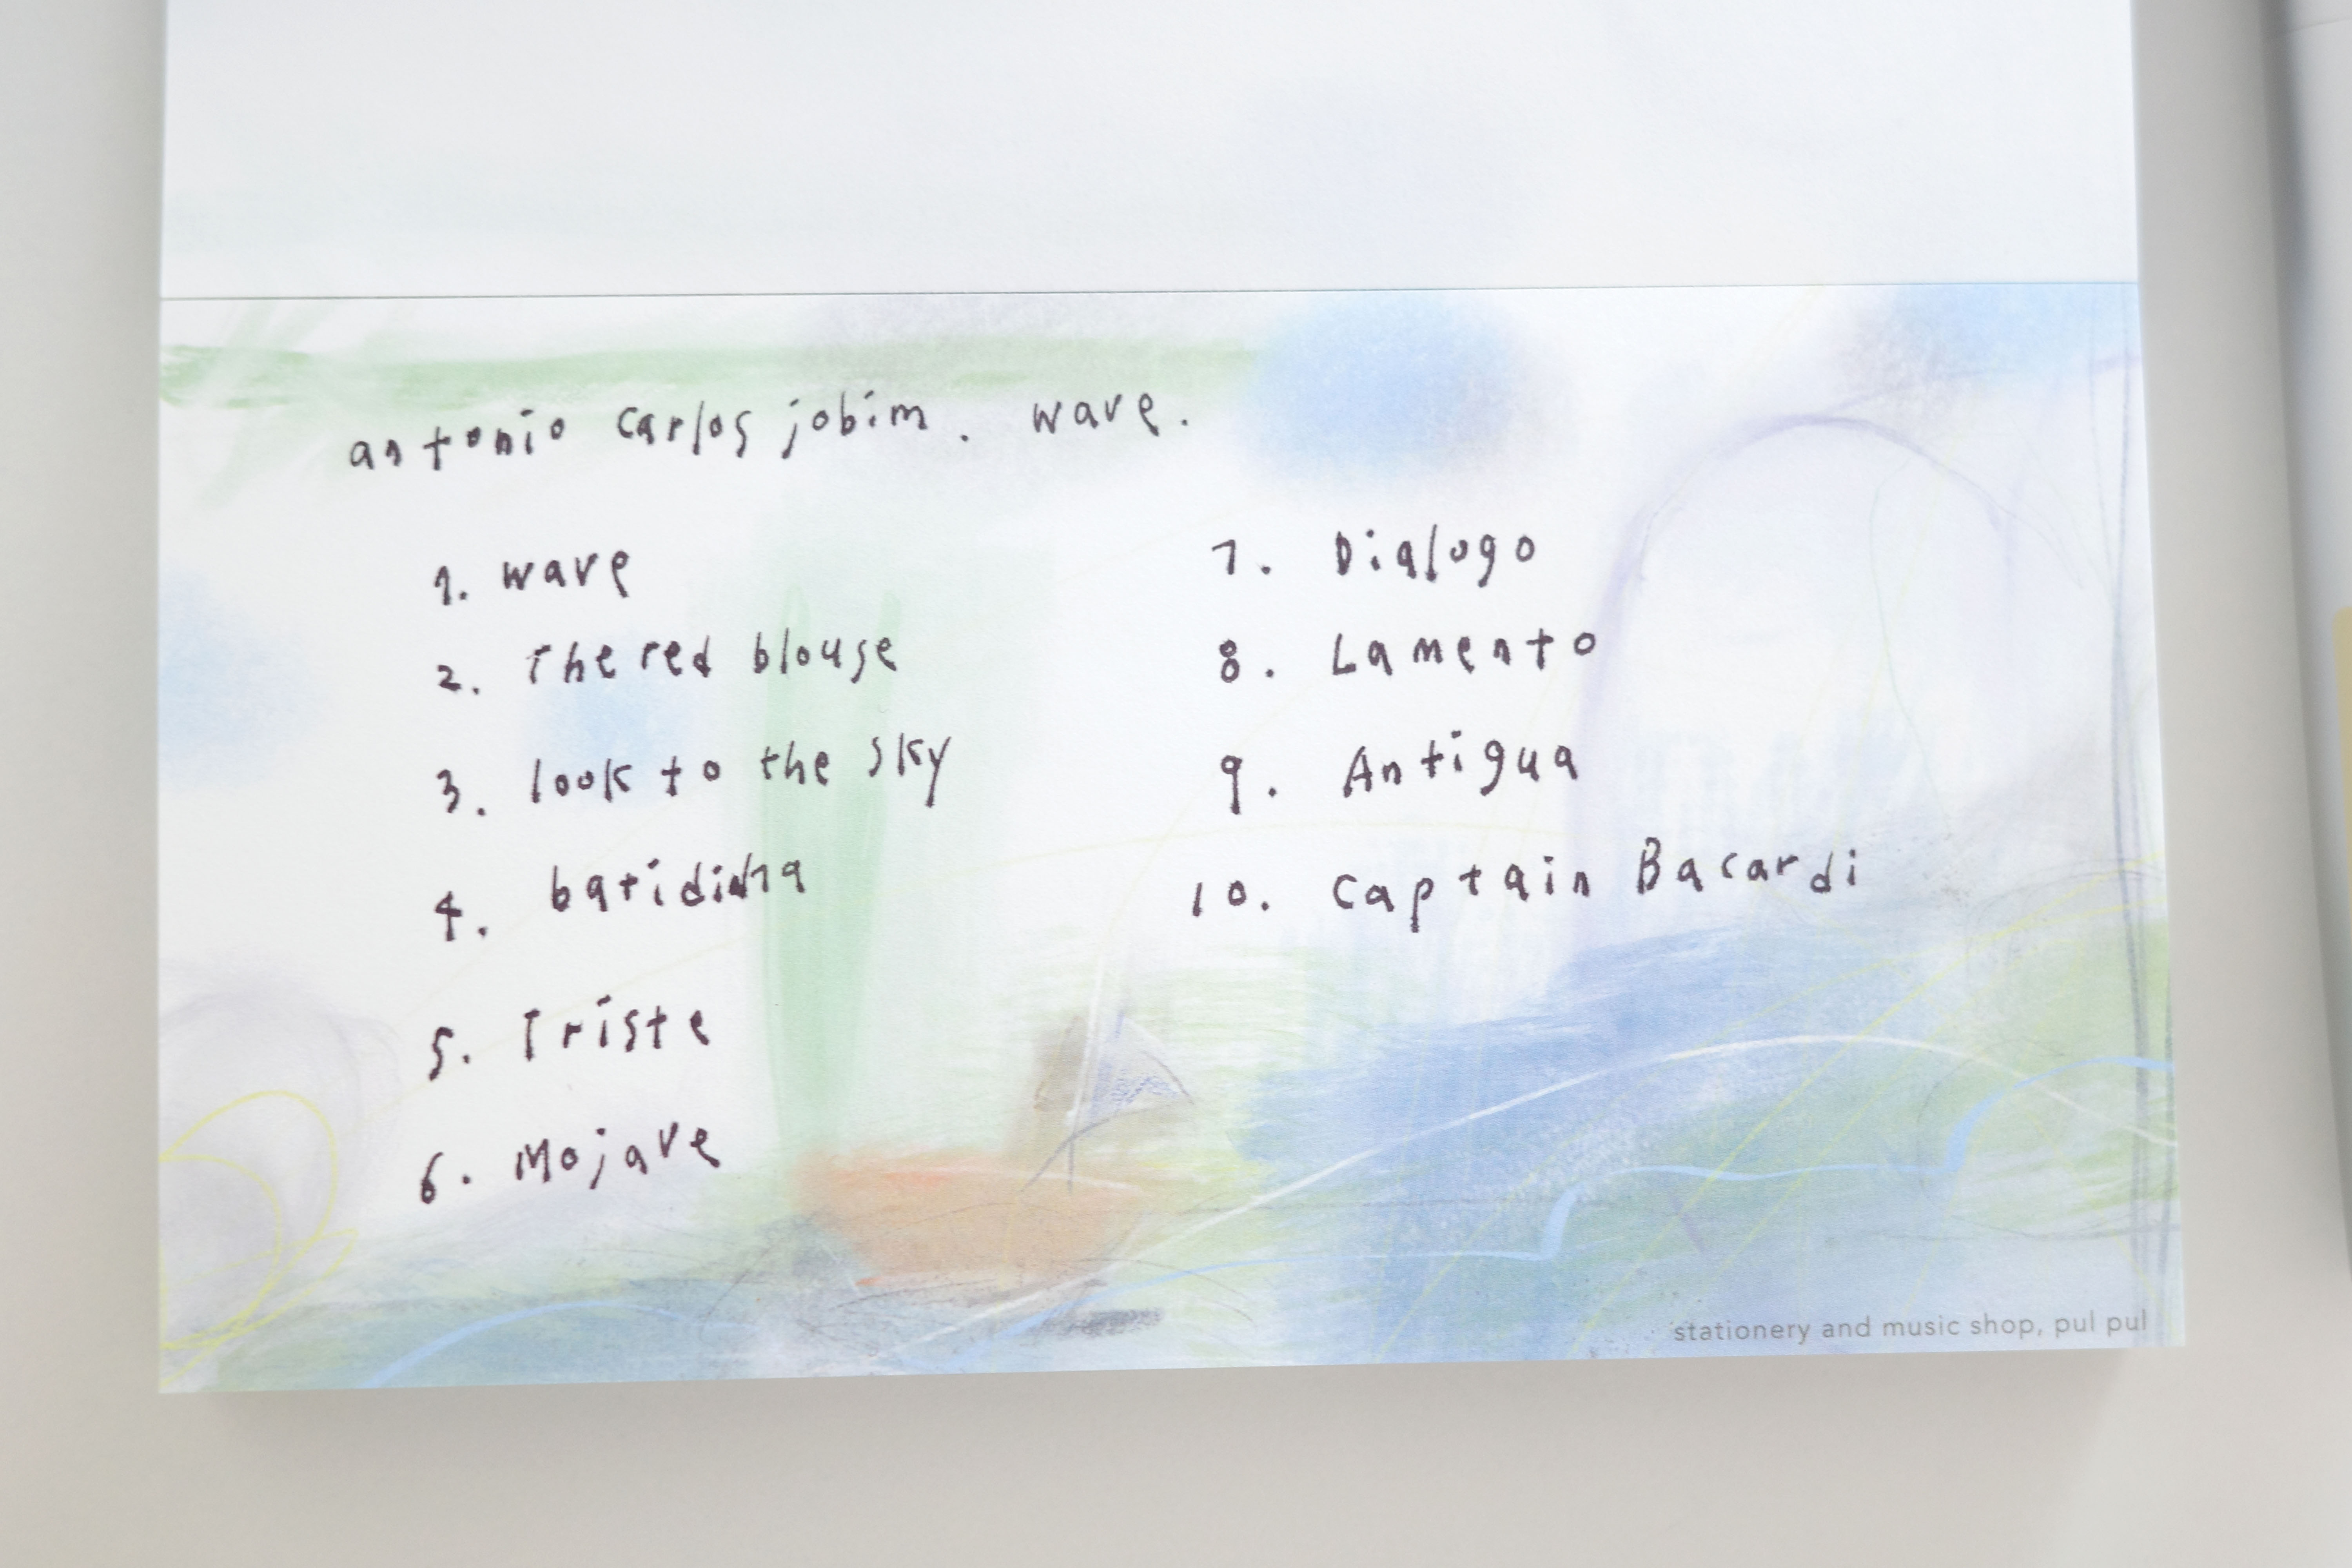 antonio carlos jobim. wave.
1. wave
2. The red blouse
3. look to the sky
4. batidinha
5. Triste
6. Mojave
7. Dialogo
8. Lamento
9. Antigua
10. Captain Bacardi
stationery and music shop, pul pul